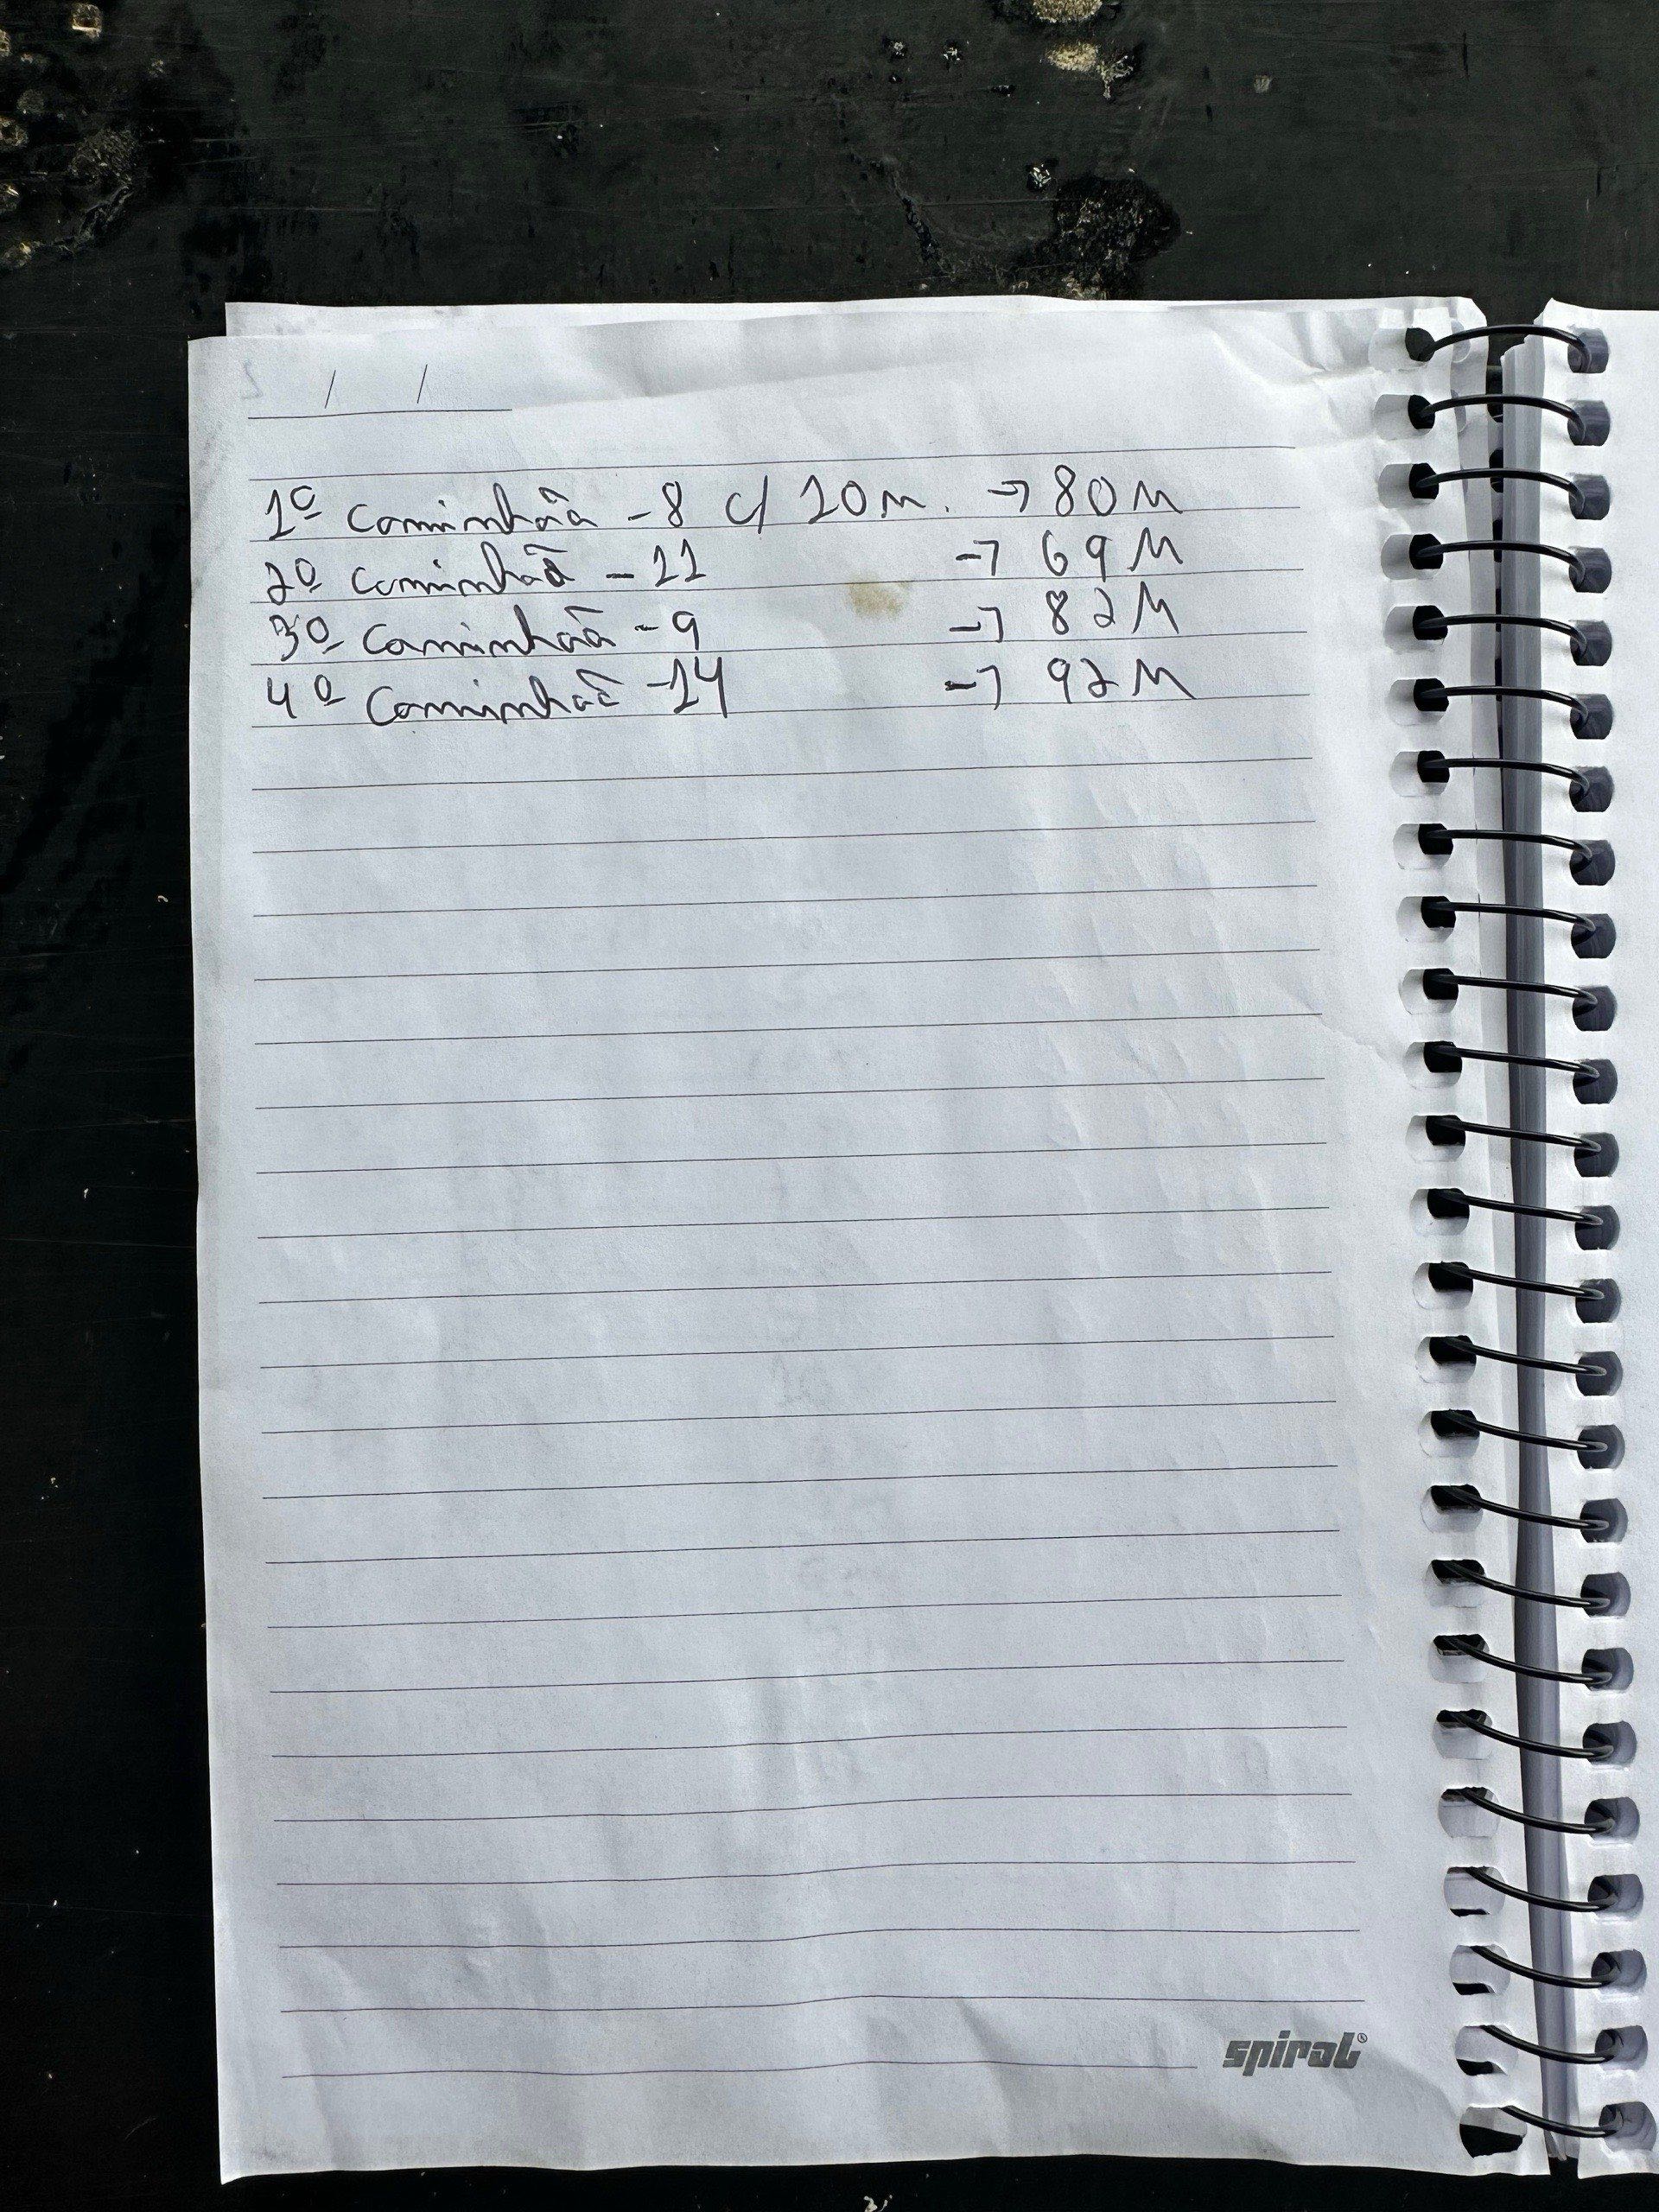 / /
1º Caminhão - 8 c/ 10 m. → 80 M
2º Caminhão - 11 → 69 M
3º Caminhão - 9 → 82 M
4º Caminhão - 14 → 92 M
spiral®